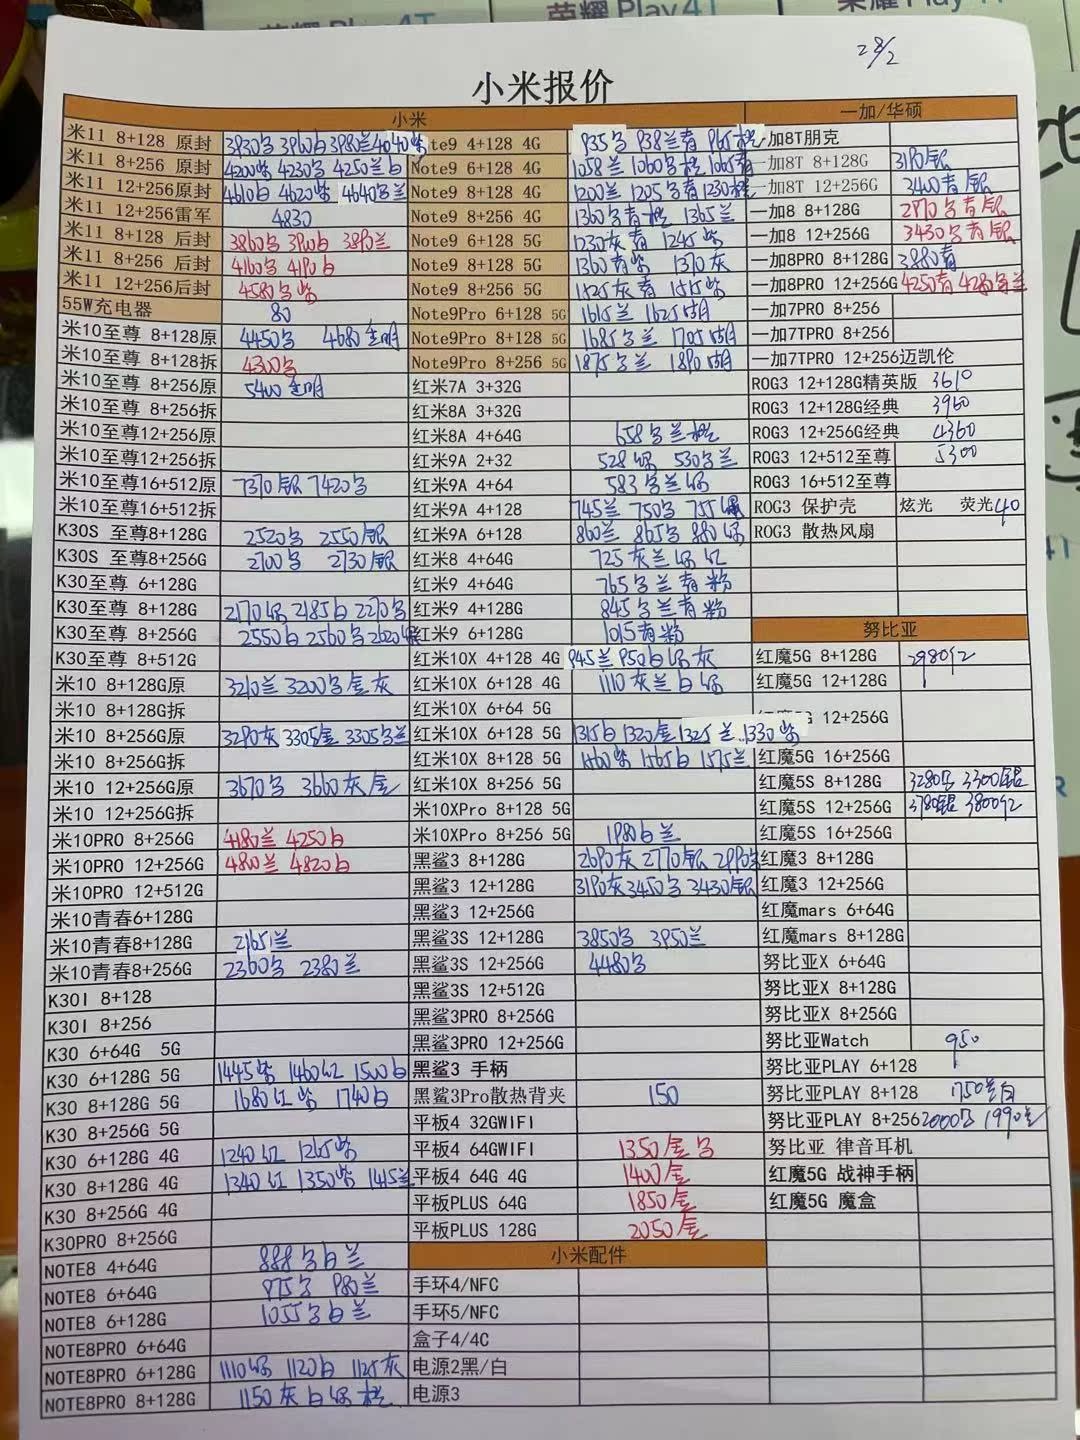 荣耀 Play4T
荣耀 Play4T
28/2
小米报价
小米
一加/华硕
米11 8+128 原封 3930 3980兰4040
Note9 4+128 4G 935 938兰青 965
一加8T朋克
米11 8+256 原封 4200紫 4230 4250白
Note9 6+128 4G 1058兰 1060 1065青
一加8T 8+128G 3190银
米11 12+256原封 4610白 4620紫 4640
Note9 8+128 4G 1200兰 1205 青1230
一加8T 12+256G 3400青 银
米11 12+256雷军 4830
Note9 8+256 4G 1360 青 1365兰
一加8 8+128G 2970 青 银
米11 8+128 后封 3860 3890兰
Note9 6+128 5G 1230灰 青 1245紫
一加8 12+256G 3430 青 银
米11 8+256 后封 4160 4190白
Note9 8+128 5G 1360青紫 1370灰
一加8PRO 8+128G 3880青
米11 12+256后封 4580 紫
Note9 8+256 5G 1525灰青
一加8PRO 12+256G 4250青 4280
55W充电器 80
Note9Pro 6+128 5G 1615兰
一加7PRO 8+256
米10至尊 8+128原 4450 4680透明
Note9Pro 8+128 5G 1685 兰 1705
一加7TPRO 8+256
米10至尊 8+128拆 4300
Note9Pro 8+256 5G 1875 兰 1890
一加7TPRO 12+256迈凯伦
米10至尊 8+256原 5400透明
红米7A 3+32G
ROG3 12+128G精英版 3610
米10至尊 8+256拆
红米8A 3+32G
ROG3 12+128G经典 3960
米10至尊12+256原
红米8A 4+64G 658 兰
ROG3 12+256G经典 4360
米10至尊12+256拆
红米9A 2+32 528绿 530 兰
ROG3 12+512至尊 5300
米10至尊16+512原 7370银 7420
红米9A 4+64 583 兰绿
ROG3 16+512至尊
米10至尊16+512拆
红米9A 4+128 745兰 750 755绿
ROG3 保护壳 炫光 荧光40
K30S 至尊8+128G 2520 2550银
红米9A 6+128 860兰 865 880绿
ROG3 散热风扇
K30S 至尊8+256G 2700 2730银
红米8 4+64G 725灰兰绿红
K30至尊 6+128G
红米9 4+64G 765 兰青粉
K30至尊 8+128G 2170绿 2185白 2270
红米9 4+128G 845 兰青粉
K30至尊 8+256G 2550白 2560 2620绿
红米9 6+128G 1015青粉
努比亚
K30至尊 8+512G
红米10X 4+128 4G 945兰 950白绿灰
红魔5G 8+128G 2980红
米10 8+128G原 3210兰 3200 金灰
红米10X 6+128 4G 1110灰兰白绿
红魔5G 12+128G
米10 8+128G拆
红米10X 6+64 5G
12+256G
米10 8+256G原 3290灰 3305金 3305 兰
红米10X 6+128 5G 1315白 1320金 1325兰 1330紫
米10 8+256G拆
红米10X 8+128 5G 1560紫 1565白 1575兰
红魔5G 16+256G
米10 12+256G原 3670 3660灰 金
红米10X 8+256 5G
红魔5S 8+128G 3280 3300银
米10 12+256G拆
米10XPro 8+128 5G
红魔5S 12+256G 3780银 3800红
米10PRO 8+256G 4180兰 4250白
米10XPro 8+256 5G 1980白兰
红魔5S 16+256G
米10PRO 12+256G 4800兰 4820白
黑鲨3 8+128G 2690灰 2770银
红魔3 8+128G
米10PRO 12+512G
黑鲨3 12+128G 3190灰 3450 3430银
红魔3 12+256G
米10青春6+128G
黑鲨3 12+256G
红魔mars 6+64G
米10青春8+128G 2165兰
黑鲨3S 12+128G 3850 3950兰
红魔mars 8+128G
米10青春8+256G 2360 2380兰
黑鲨3S 12+256G 4480
努比亚X 6+64G
K30I 8+128
黑鲨3S 12+512G
努比亚X 8+128G
K30I 8+256
黑鲨3PRO 8+256G
努比亚X 8+256G
K30 6+64G 5G
黑鲨3PRO 12+256G
努比亚Watch 950
K30 6+128G 5G 1445紫 1460红 1500白
黑鲨3 手柄
努比亚PLAY 6+128
K30 8+128G 5G 1680红 紫 1740白
黑鲨3Pro散热背夹 150
努比亚PLAY 8+128 1750 白
K30 8+256G 5G
平板4 32GWIFI
努比亚PLAY 8+256 2000 1990
K30 6+128G 4G 1240红 1265紫
平板4 64GWIFI 1350金
努比亚 律音耳机
K30 8+128G 4G 1340红 1350紫 1415兰
平板4 64G 4G 1400金
红魔5G 战神手柄
K30 8+256G 4G
平板PLUS 64G 1850金
红魔5G 魔盒
K30PRO 8+256G
平板PLUS 128G 2050金
NOTE8 4+64G 888 白兰
小米配件
NOTE8 6+64G 975 980兰
手环4/NFC
NOTE8 6+128G 1055 白兰
手环5/NFC
NOTE8PRO 6+64G
盒子4/4C
NOTE8PRO 6+128G 1110绿 1120白 1125灰
电源2黑/白
NOTE8PRO 8+128G 1150灰白绿
电源3